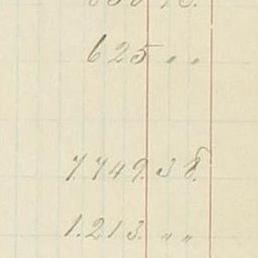 625 〃 〃
7.749.38.
1.213. 〃 〃